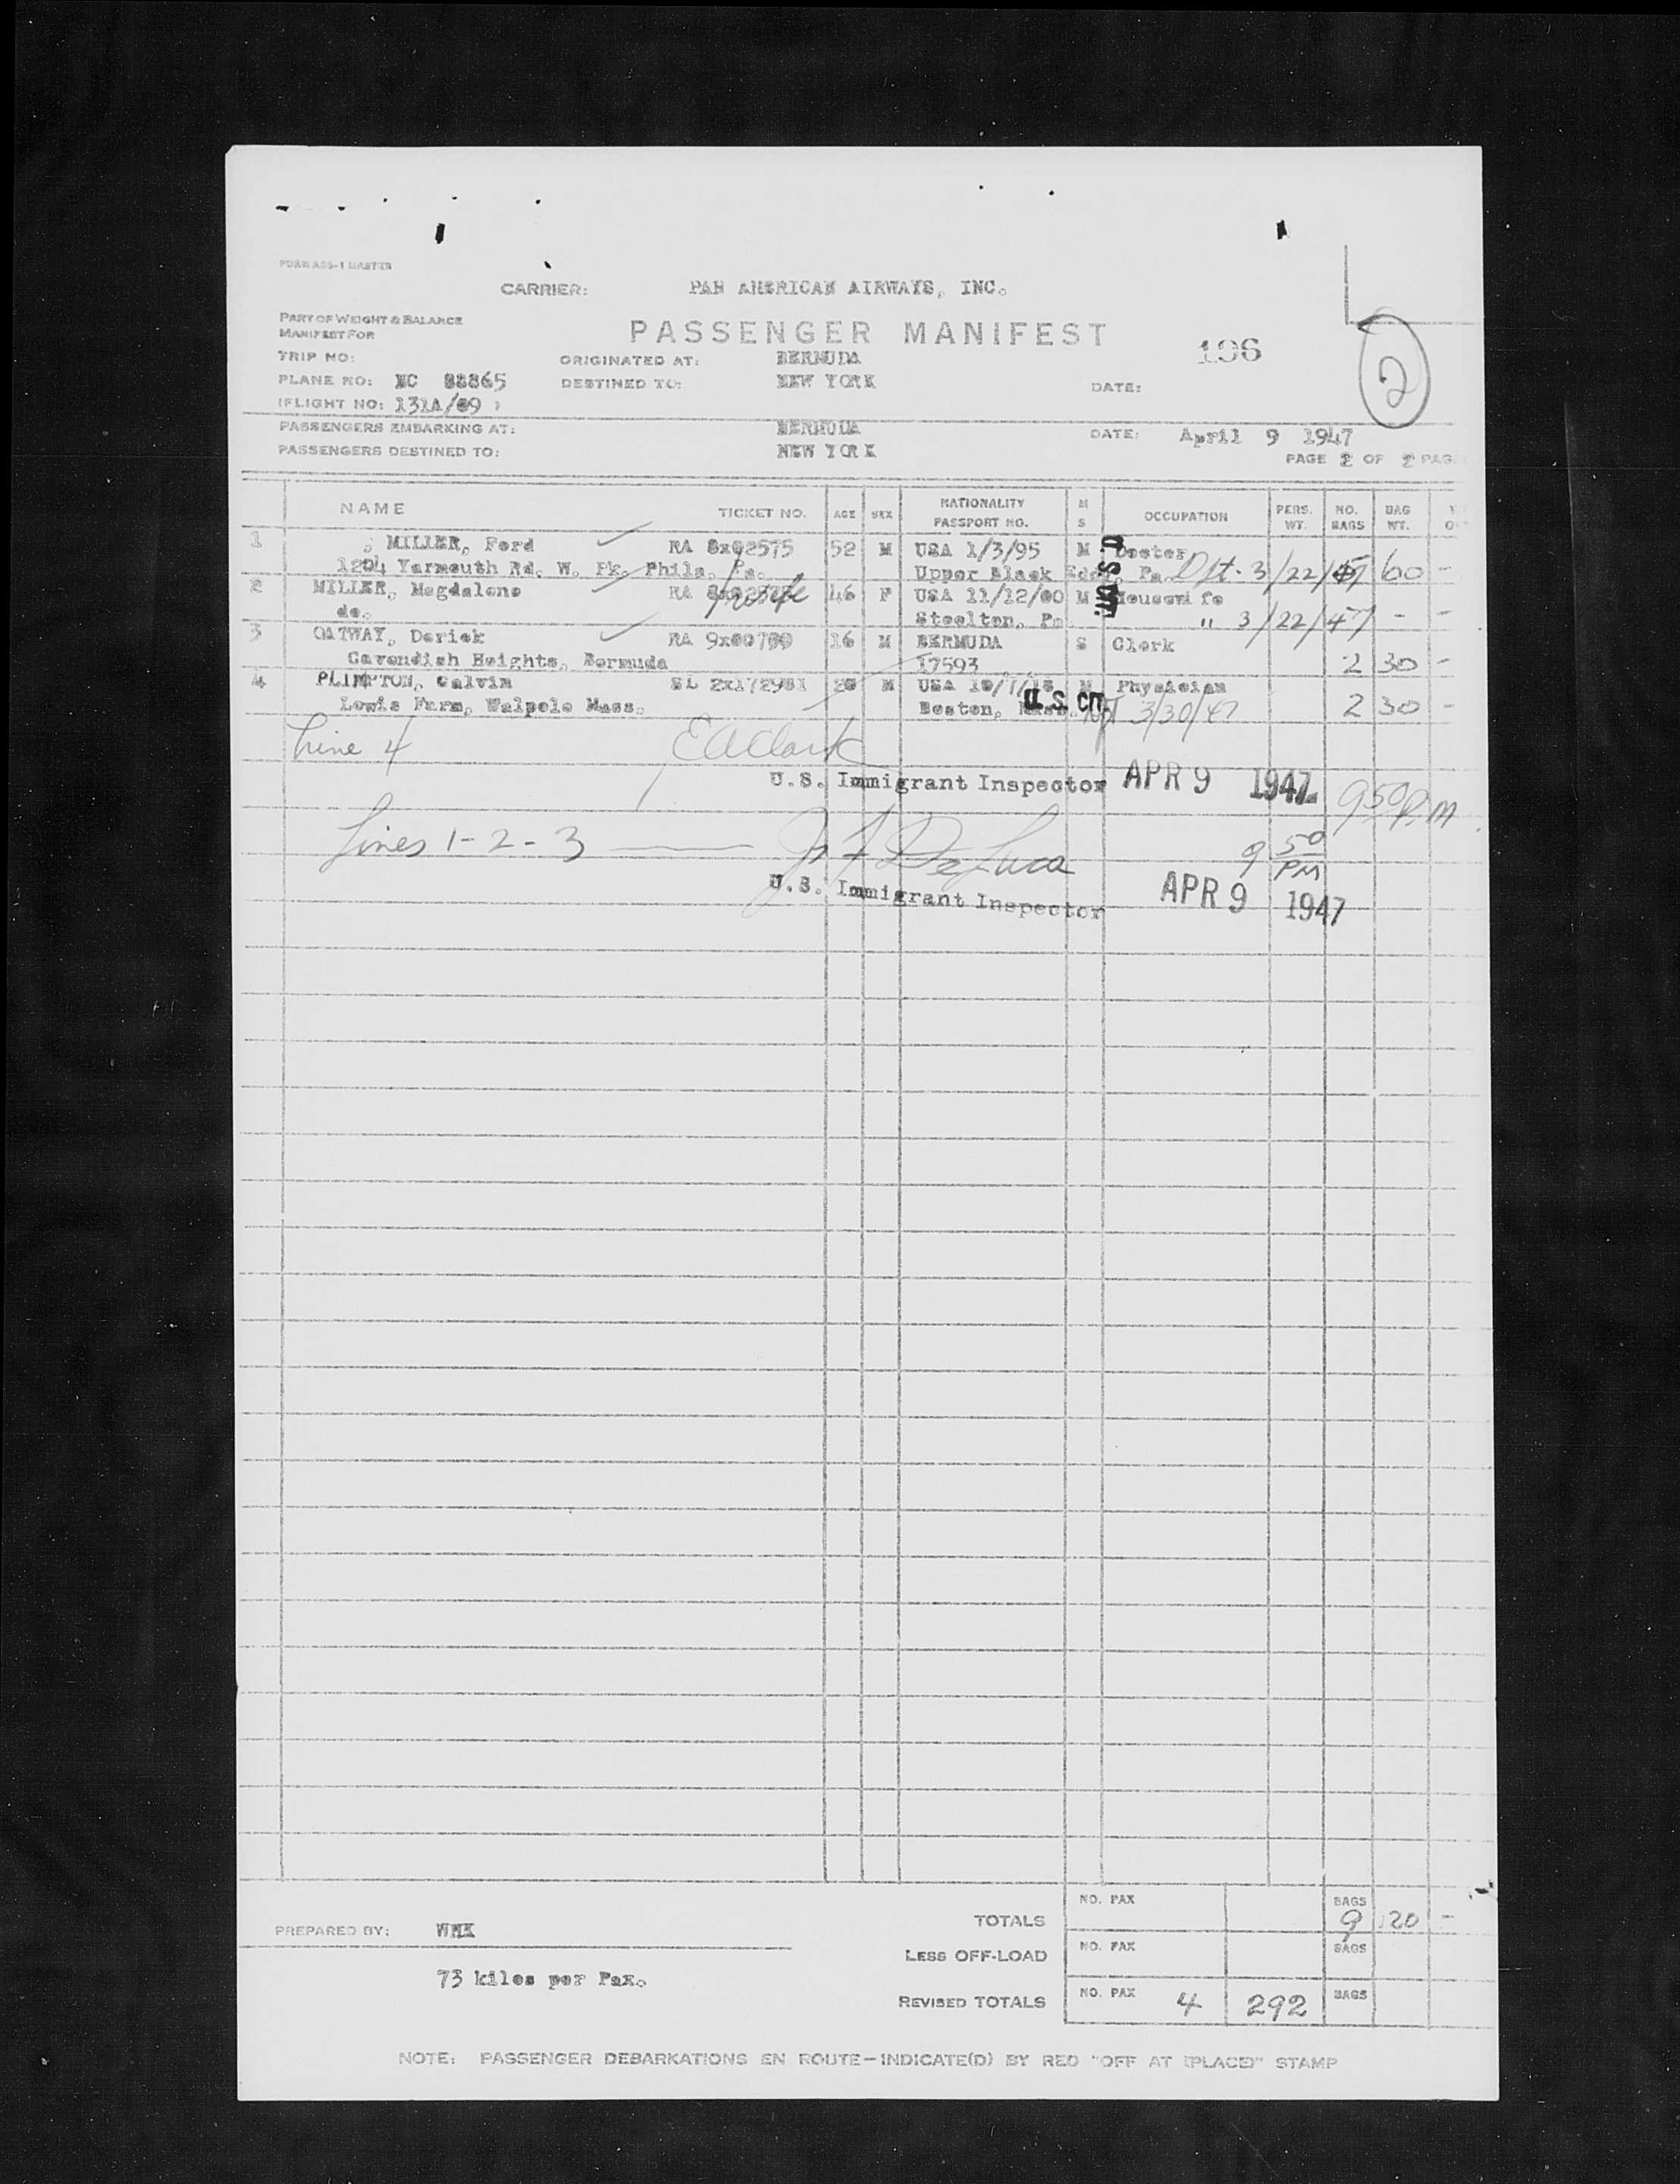 FORM AOS-1 MASTER
CARRIER: PAN AMERICAN AIRWAYS, INC.
PART OF WEIGHT & BALANCE
MANIFEST FOR
PASSENGER MANIFEST
196
2
TRIP NO: ORIGINATED AT: BERMUDA
PLANE NO: NC 88865 DESTINED TO: NEW YORK DATE:
(FLIGHT NO: 131A/09 )
PASSENGERS EMBARKING AT: BERMUDA DATE: April 9 1947
PASSENGERS DESTINED TO: NEW YORK
PAGE 2 OF 2 PAG
NAME TICKET NO. AGE SEX NATIONALITY PASSPORT NO. M S OCCUPATION PERS. WT. NO. BAGS BAG WT.
1 MILLER, Ford RA 8x02575 52 M USA 1/3/95 M Docter
1204 Yarmouth Rd. W. Pk. Phila. Pa. Upper Black Eddy, Pa. Dpt. 3/22/47 5 60 -
U.S. CIT.
2 MILLER, Magdalene RA wife 46 F USA 11/12/00 M Housewife
do. Steelton, Pa " 3/22/47 -
3 OATWAY, Derick RA 9x00780 16 M BERMUDA S Clerk
Cavendish Heights, Bermuda 17593 2 30 -
4 PLIMPTON, Calvin SL 2x172981 28 M USA 10/7/18 M Physician
Lewis Farm, Walpole Mass. Boston, Mass. U.S. CIT. Dpt 3/30/47 2 30 -
Line 4 E A Clark
U.S. Immigrant Inspector APR 9 1947 9 50 P.M.
Lines 1-2-3 De Luca 9 50 PM
U.S. Immigrant Inspector APR 9 1947
NO. PAX BAGS
PREPARED BY: WMK TOTALS 9 120 -
LESS OFF-LOAD NO. PAX BAGS
73 kilos per Pax.
REVISED TOTALS NO. PAX 4 292 BAGS
NOTE: PASSENGER DEBARKATIONS EN ROUTE—INDICATE(D) BY RED "OFF AT (PLACE)" STAMP